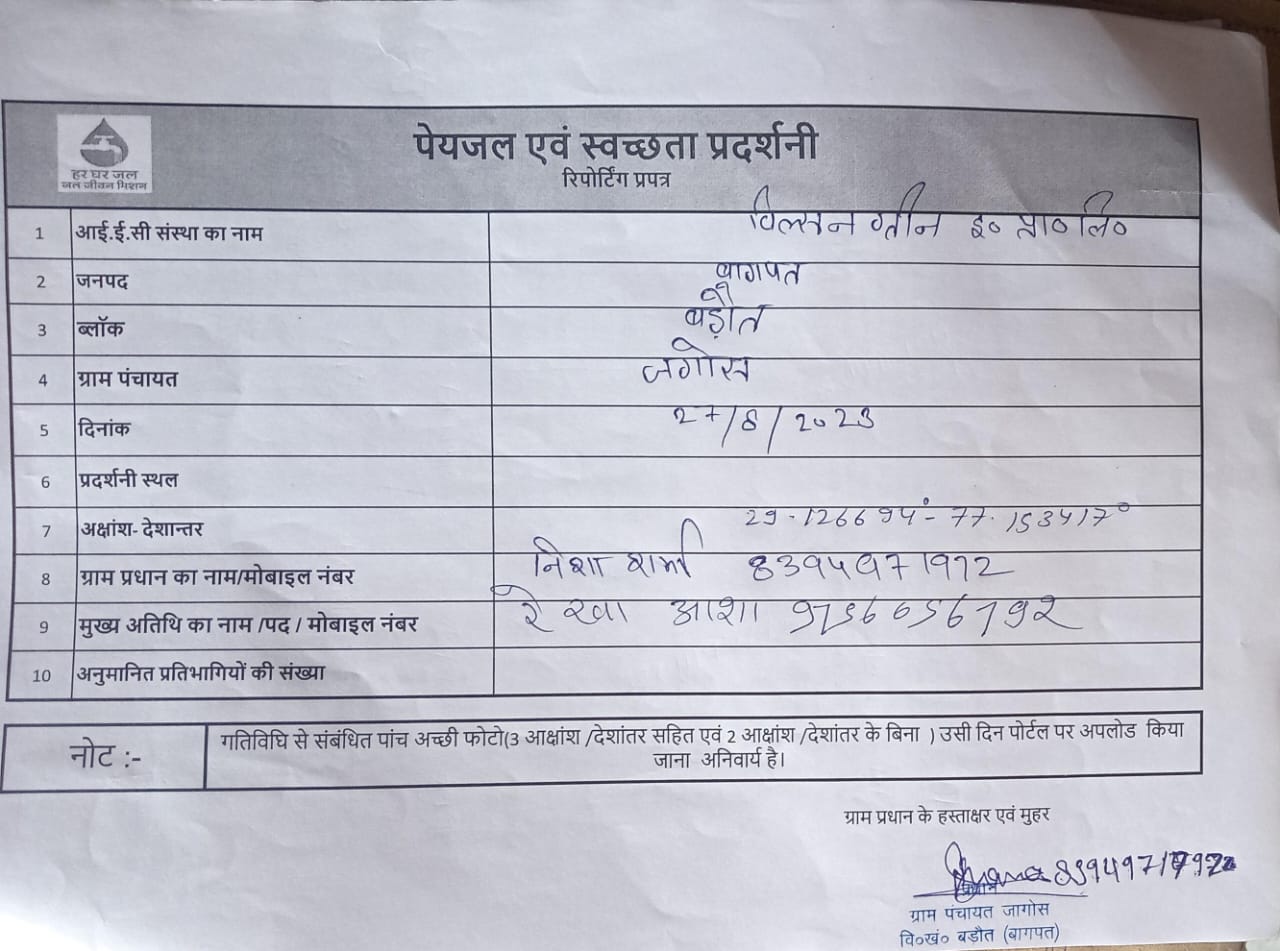 हर घर जल
जल जीवन मिशन
पेयजल एवं स्वच्छता प्रदर्शनी
रिपोर्टिंग प्रपत्र
1 आई.ई.सी संस्था का नाम विल्सन ग्रीन इ० प्रा० लि०
2 जनपद बागपत
3 ब्लॉक बड़ौत
4 ग्राम पंचायत जगोस
5 दिनांक 27/8/2023
6 प्रदर्शनी स्थल
7 अक्षांश- देशान्तर 29.126694°- 77.153417°
8 ग्राम प्रधान का नाम/मोबाइल नंबर निशा शर्मा 8394971972
9 मुख्य अतिथि का नाम /पद / मोबाइल नंबर रेखा आशा
10 अनुमानित प्रतिभागियों की संख्या
नोट :- गतिविधि से संबंधित पांच अच्छी फोटो(3 आक्षांश /देशांतर सहित एवं 2 आक्षांश /देशांतर के बिना ) उसी दिन पोर्टल पर अपलोड किया
जाना अनिवार्य है।
ग्राम प्रधान के हस्ताक्षर एवं मुहर
प्रधान
ग्राम पंचायत जागोस
वि०खं० बड़ौत (बागपत)